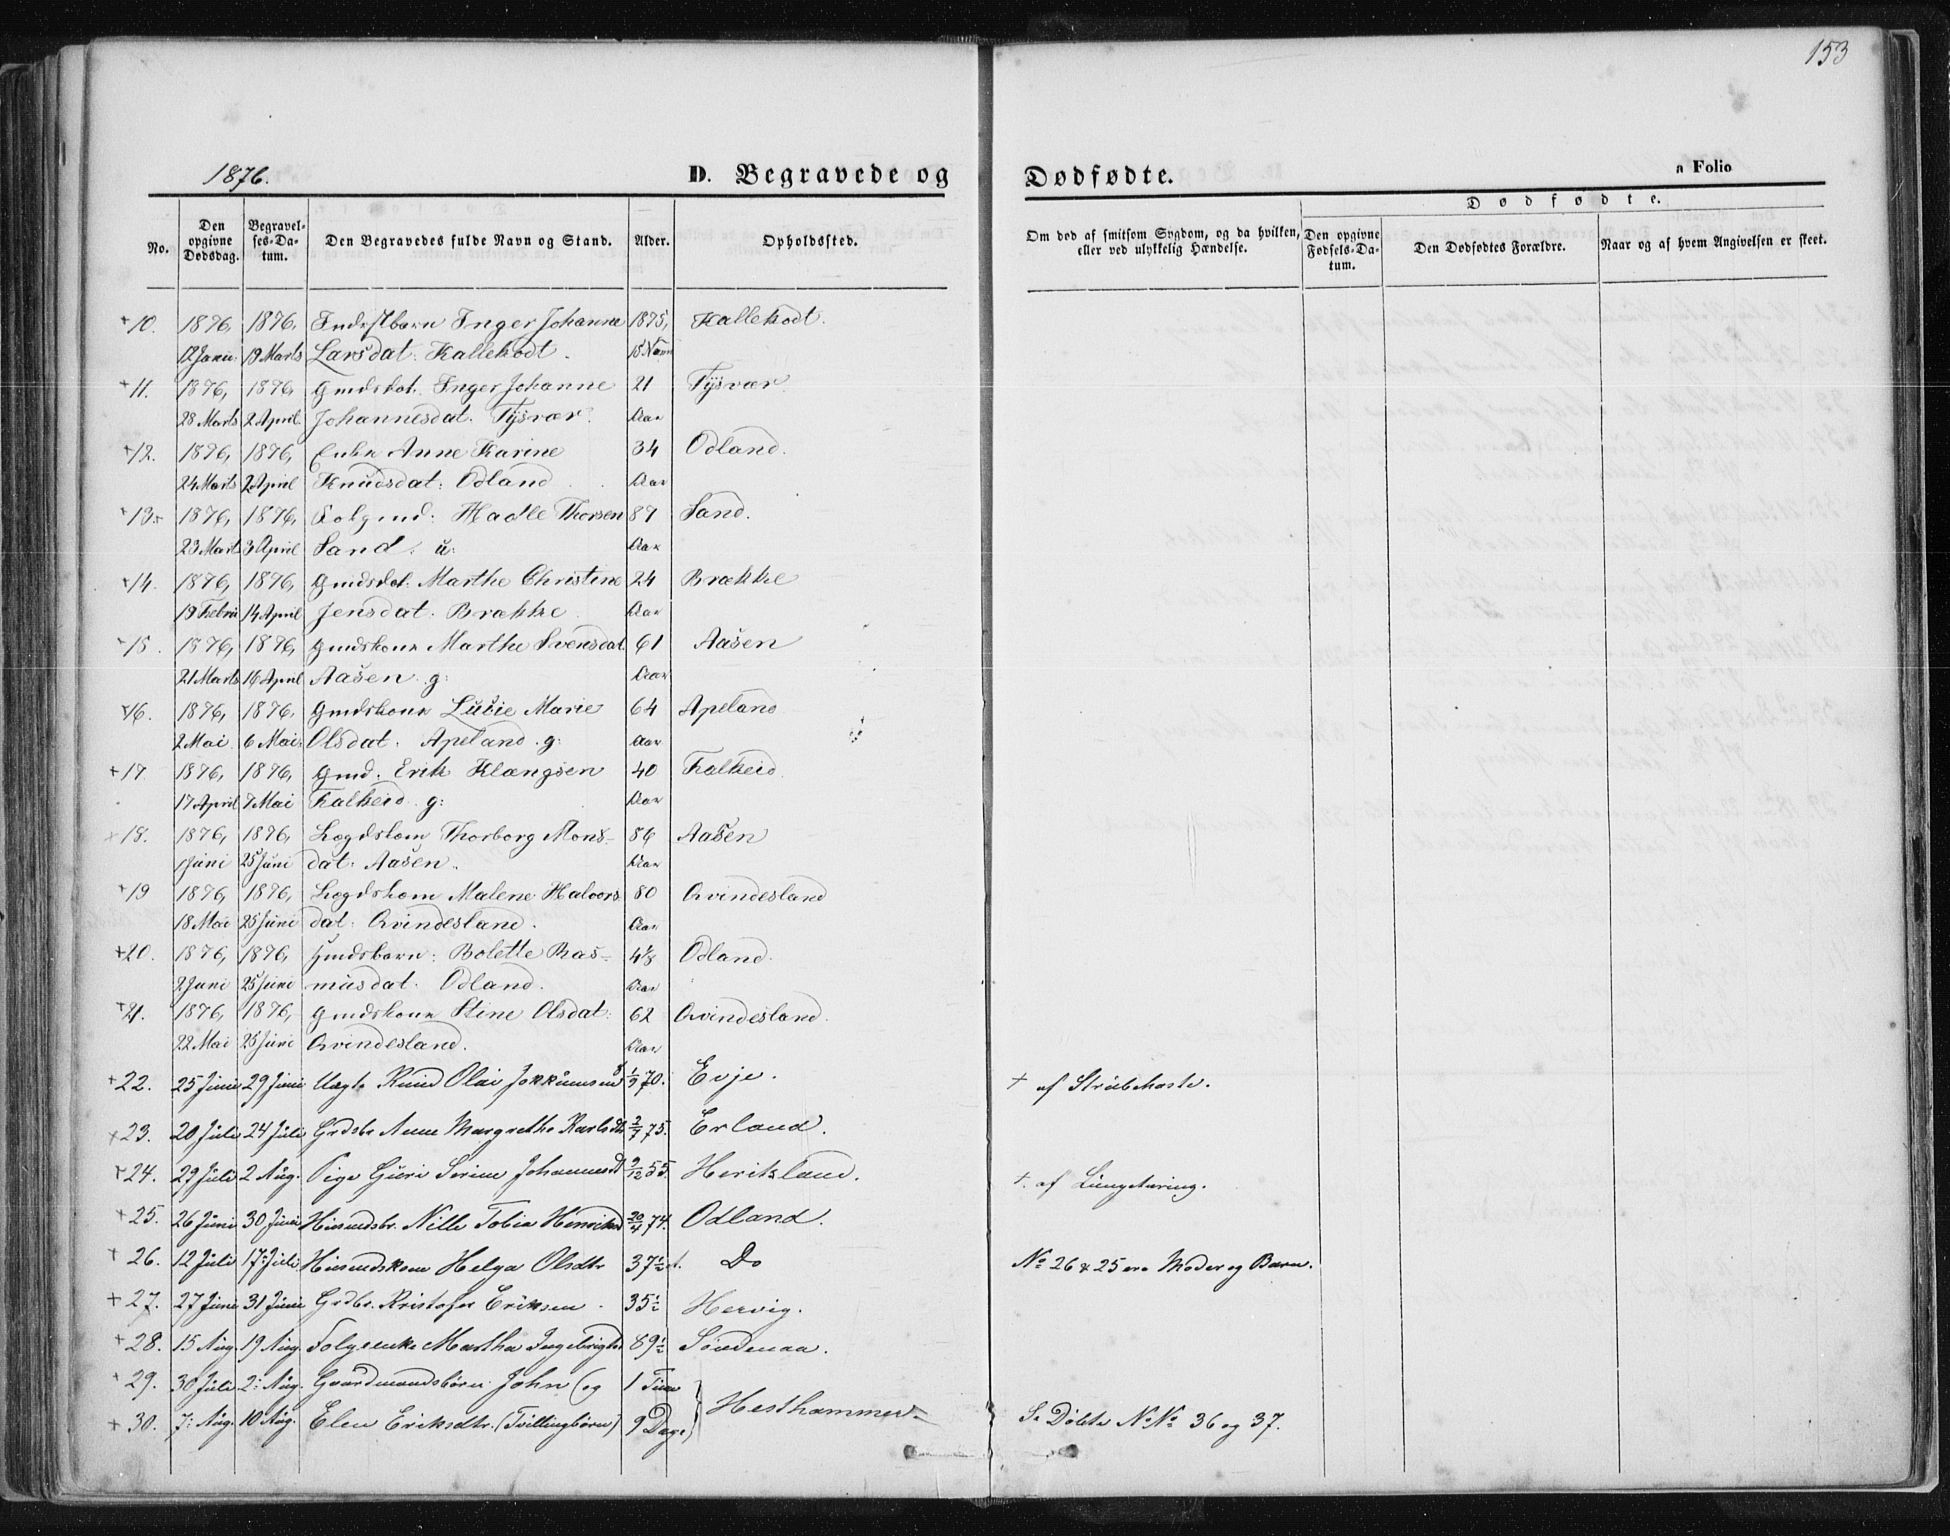 153
1876.
D. Begravede og Dødfødte.
n Folio
No.
Den opgivne Dødsdag.
Begravelses-Datum.
Den Begravedes fulde Navn og Stand.
Alder.
Opholdssted.
Om død af smitsom Sygdom, og da hvilken, eller ved ulykkelig Hændelse.
Dødfødte.
Den opgivne Fødsels-Datum.
Den Dødfødtes Forældre.
Naar og af hvem Angivelsen er skeet.
+10. 1876, 1876, Inger Johanne 1875, Kallekodt.
12 Janu: 19 Marts Larsdat: Kallekodt. 15 Novm
+11. 1876, 1876, Inger Johanne 21 Tysvær.
28 Marts 2 April Johannesdat. Tysvær. Aar
+12. 1876, 1876, Enke Anne Karine 34 Odland.
24 Marts 2 April Knudsdat: Odland Aar
+13. 1876, 1876, Folgmd: Hadle Thorsen 87 Sand.
23 Marts 3 April Sand. u: Aar
+14. 1876, 1876, Gmdsdat: Marthe Christine 24 Brække
19 Febru 14 April Jensdat. Brække Aar
+15. 1876, 1876, Gmdskone Marthe Svensdat 61 Aasen
21 Marts 16 April Aasen. g: Aar
+16. 1876, 1876, Gmdskone Lusie Marie 64 Apeland
2 Mai 6 Mai: Olsdat. Apeland. g: Aar
+17. 1876, 1876, Gmd. Erik Klængsen 40 Falkeid.
17 April 7 Mai Falkeid. g: Aar
+18. 1876, 1876, Lægdslem Thorborg Mons- 86 Aasen
1 Juni 25 Juni dat: Aasen. Aar
+19 1876, 1876, Lægdslem Malene Halvors 80 Qvindesland
18 Mai 25 Juni dat: Qvindesland. Aar
+20. 1876, 1876, Gmdsbarn: Bolette Ras- 4⅓ Odland.
2 Juni 25 Juni musdat. Odland. Aar
+21. 1876, 1876, Gmdskone Stine Olsdat: 62 Qvindesland.
22 Mai 25 Juni Qvindesland. Aar
+22. 25 Juni 29 Juni Ruud Olai 70. Evje. + af Strubehoste.
+23. 20 Juli 24 Juli Grdsbr. Anne Margrethe Karlsdtr 2/7 75. Erland.
+24. 29 Juli 2 Aug. Pige Guri Serine Johannesd 9/12 55. Heriksland. +. af Lungetæring.
+25. 26 Juni 30 Juni Husmdsbr. Nille Tobia 20/4 74. Odland.
+26. 12 Juli 17: Juli Husmdskone Helga Olsdtr 37½ Do No 26 & 25 ere Moder og Barn.
+27. 27 Juni 31 Juni Grdbr. Kristofer Eriksen. 35½ Hervig.
+28. 15 Aug. 19 Aug. Folgeenke Martha Ingebrigtsd 89½ Søvdenaa.
+29. 30 Juli 2: Aug. Gaardmandsbørn John (og 1 Time
Hesthammer.
+30. 7: Aug. 10 Aug. Elen Eriksdtr. (Tvillingbørn) 9 Dage) Se Døbte No No 36 og 37.